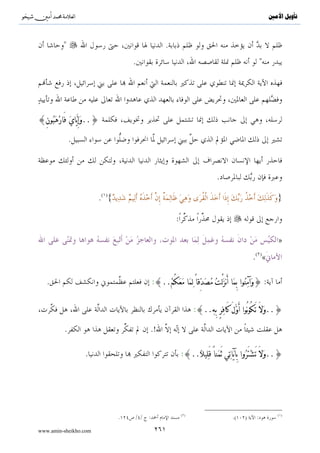 تأويل الأمين
العلامة محمد أمين شيخو
ظلم لا بدَّ أن يؤخذ منه الحق ولو ظلم ذبابة. الدنيا لها قوانين، حتى رسول الله ﷺ "وحاشا أن
يبدر منه" لو أنه ظلم نملة لقاصصه الله، الدنيا سائرة بقوانين.
فهذه الآية الكريمة إنما تنطوي على تذكير بالنعمة التي أنعم الله بها على بني إسرائيل، إذ رفع شأنهم
وفضَّلهم على العالمين، وتحريض على الوفاء بالعهد الذي عاهدوا الله تعالى عليه من طاعة الله وتأييدٍ
لرسله، وهي إلى جانب ذلك إنما تشتمل على تحذير وتخويف، فكلمة ﴿..وَإِيَّايَ فَارْهَبُونِ﴾
تشير إلى ذلك الماضي المؤلم الذي حلَّ ببني إسرائيل لمَّا انحرفوا وضلُّوا عن سواء السبيل.
فاحذر أيها الإنسان الانصراف إلى الشهوة وإيثار الدنيا الدنية، ولتكن لك من أولئك موعظة
وعبرة فإن ربك لبالمرصاد.
{وَكَذَلِكَ أَخْذُ رَبِّكَ إِذَا أَخَذَ الْقُرَى وَهِيَ ظَالِمَةٌ إِنَّ أَخْذَهُ أَلِيمٌ شَدِيدٌ}(١).
وارجع إلى قوله ﷺ إذ يقول محذِّراً مذكِّراً:
«الكَيِّسُ مَنْ دانَ نفسهُ وعَمِلَ لِمَا بعد الموت. والعاجزُ مَنْ أتْبَعَ نفسهُ هواها وتَمَنَّى على الله
الأماني»(٢).
أما آية: ﴿وَآمِنُوا بِمَا أَنْزَلْتُ مُصَدِّقاً لِمَا مَعَكُمْ..﴾: إن فعلتم عظَّمتموني وانكشف لكم الحق.
﴿..وَلاَ تَكُونُوا أَوَّلَ كَافِرٍ بِهِ..﴾: هذا القرآن يأمرك بالنظر بالآيات الدالّة على الله، هل فكّرت،
هل عقلت شيئاً من الآيات الدالّة على لا إلَه إلاّ الله!. إن لم تفكّر وتعقل هذا هو الكفر.
﴿..وَلاَ تَشْتَرُوا بِآيَاتِي ثَمَناً قَلِيلاً..﴾: بأن تتركوا التفكير بها وتلحقوا الدنيا.
(١) سورة هود: الآية (١٠٢).
(٢) مسند الإمام أحمد: ج /٤/ ص١٢٤.
٢٦١
www.amin-sheikho.com